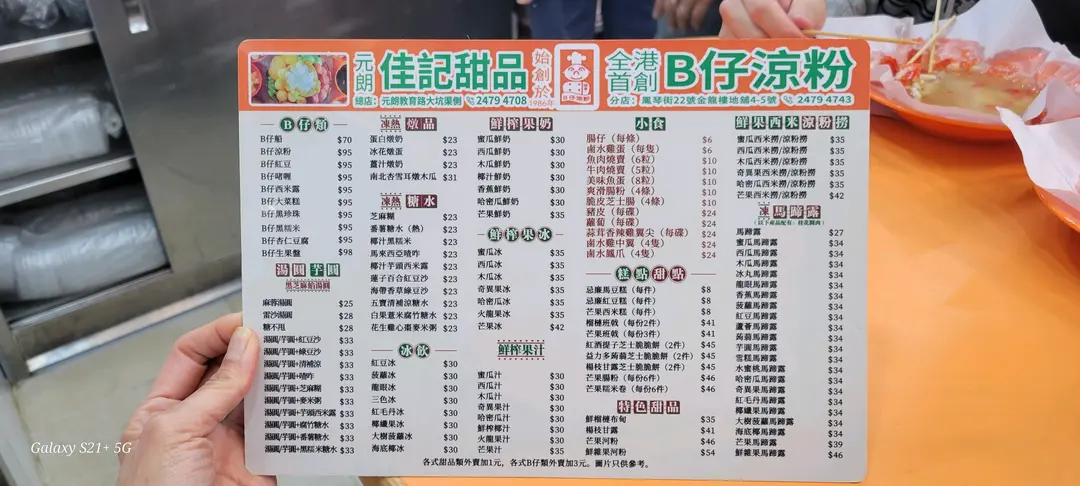 元朗 佳記甜品 始創於1986年
總店：元朗教育路大坑渠側 2479 4708
全港首創 B仔涼粉
分店：鳳琴街22號金龍樓地舖4-5號 2479 4743
B仔類
B仔船 $70
B仔涼粉 $95
B仔紅豆 $95
B仔啫喱 $95
B仔西米露 $95
B仔大菜糕 $95
B仔黑珍珠 $95
B仔黑糯米 $95
B仔杏仁豆腐 $95
B仔生果盤 $98
湯圓芋圓
黑芝麻餡湯圓
麻蓉湯圓 $25
雷沙湯圓 $28
糖不甩 $28
湯圓/芋圓+紅豆沙 $33
湯圓/芋圓+綠豆沙 $33
湯圓/芋圓+清補涼 $33
湯圓/芋圓+喳咋 $33
湯圓/芋圓+芝麻糊 $33
湯圓/芋圓+麥米粥 $33
湯圓/芋圓+芋頭西米露 $33
湯圓/芋圓+腐竹糖水 $33
湯圓/芋圓+番薯糖水 $33
湯圓/芋圓+黑糯米糖水 $33
凍熱 燉品
蛋白燉奶 $23
冰花燉蛋 $23
薑汁燉奶 $23
南北杏雪耳燉木瓜 $31
凍熱 糖水
芝麻糊 $23
番薯糖水（熱） $23
椰汁黑糯米 $23
馬來西亞喳咋 $23
椰汁芋頭西米露 $23
蓮子百合紅豆沙 $23
海帶香草綠豆沙 $23
五寶清補涼糖水 $23
白果薏米腐竹糖水 $23
花生雞心棗麥米粥 $23
冰飲
紅豆冰 $30
菠蘿冰 $30
龍眼冰 $30
三色冰 $30
紅毛丹冰 $30
椰纖果冰 $30
大樹菠蘿冰 $30
海底椰冰 $30
鮮榨果奶
蜜瓜鮮奶 $30
西瓜鮮奶 $30
木瓜鮮奶 $30
椰汁鮮奶 $30
香蕉鮮奶 $30
哈密瓜鮮奶 $30
芒果鮮奶 $35
鮮榨果冰
蜜瓜冰 $35
西瓜冰 $35
木瓜冰 $35
奇異果冰 $35
哈密瓜冰 $35
火龍果冰 $35
芒果冰 $42
鮮榨果汁
蜜瓜汁 $30
西瓜汁 $30
木瓜汁 $30
奇異果汁 $30
哈密瓜汁 $30
鮮榨椰汁 $30
火龍果汁 $30
芒果汁 $35
小食
腸仔（每條） $6
鹵水雞蛋（每隻） $6
魚肉燒賣（6粒） $10
牛肉燒賣（5粒） $10
美味魚蛋（8粒） $10
爽滑腸粉（4條） $10
脆皮芝士腸（4條） $10
豬皮（每碟） $24
蘿蔔（每碟） $24
蒜茸香辣雞翼尖（每碟） $24
鹵水雞中翼（4隻） $24
鹵水鳳爪（4隻） $24
糕點甜點
忌廉馬豆糕（每件） $8
忌廉紅豆糕（每件） $8
芒果西米糕（每件） $8
榴槤班戟（每份2件） $41
芒果班戟（每份3件） $41
紅酒提子芝士脆脆餅（2件） $45
益力多蒟蒻芝士脆脆餅（2件） $45
楊枝甘露芝士脆脆餅（2件） $45
芒果腸粉（每份6件） $46
芒果糯米卷（每份6件） $46
特色甜品
鮮榴槤布甸 $35
楊枝甘露 $41
芒果河粉 $46
鮮雜果河粉 $54
鮮果西米涼粉撈
蜜瓜西米撈/涼粉撈 $35
西瓜西米撈/涼粉撈 $35
木瓜西米撈/涼粉撈 $35
奇異果西米撈/涼粉撈 $35
哈密瓜西米撈/涼粉撈 $35
芒果西米撈/涼粉撈 $42
凍 馬蹄露
馬蹄露 $27
蜜瓜馬蹄露 $34
西瓜馬蹄露 $34
木瓜馬蹄露 $34
冰丸馬蹄露 $34
龍眼馬蹄露 $34
香蕉馬蹄露 $34
菠蘿馬蹄露 $34
紅豆馬蹄露 $34
蘆薈馬蹄露 $34
蒟蒻馬蹄露 $34
芋圓馬蹄露 $34
雪糕馬蹄露 $34
水蜜桃馬蹄露 $34
哈密瓜馬蹄露 $34
奇異果馬蹄露 $34
紅毛丹馬蹄露 $34
椰纖果馬蹄露 $34
大樹菠蘿馬蹄露 $34
海底椰馬蹄露 $34
芒果馬蹄露 $39
鮮雜果馬蹄露 $46
各式甜品類外賣加1元，各式B仔類外賣加3元。圖片只供參考。
Galaxy S21+ 5G